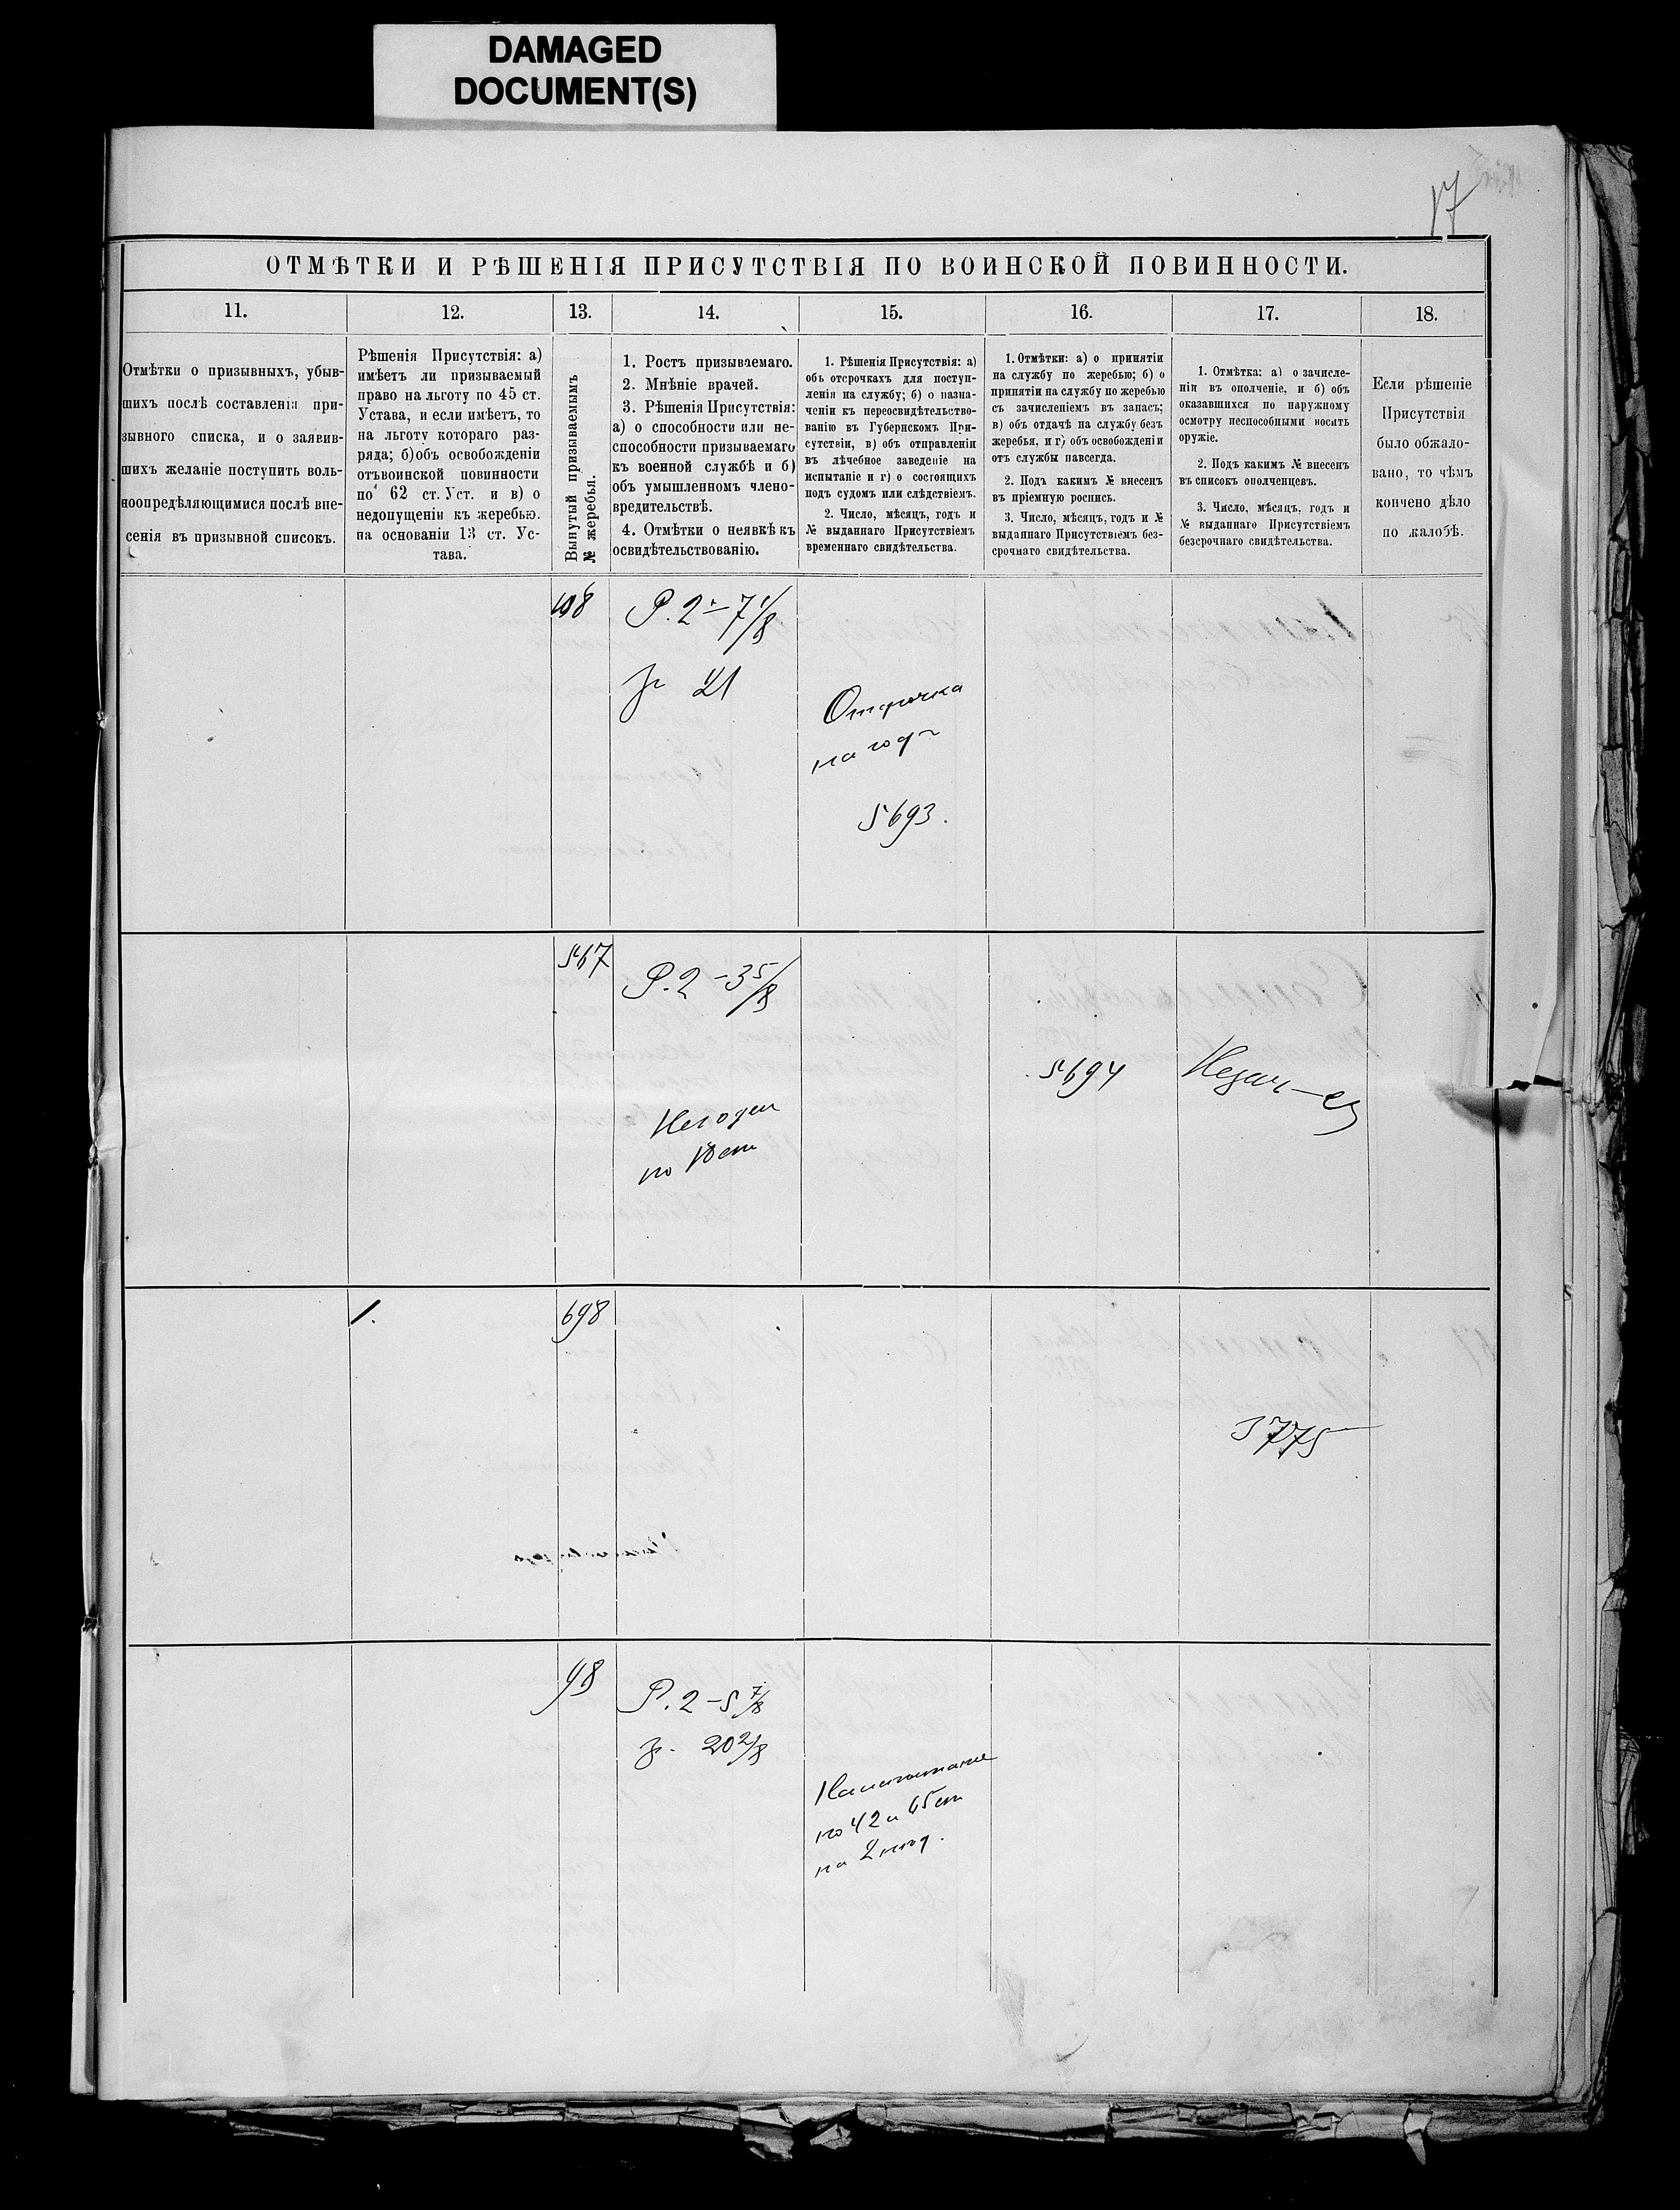 DAMAGED
DOCUMENT(S)
17
ОТМѢТКИ И РѢШЕНІЯ ПРИСУТСТВІЯ ПО ВОИНСКОЙ ПОВИННОСТИ.
11.
Отмѣтки о призывныхъ, убыв-
шихъ послѣ составленія при-
зывного списка, и о заявив-
шихъ желаніе поступить воль-
ноопредѣляющимися послѣ вне-
сенія въ призывной списокъ.
12.
Рѣшенія Присутствія: а)
имѣетъ ли призываемый
право на льготу по 45 ст.
Устава, и если имѣетъ, то
на льготу котораго раз-
ряда; б) объ освобожденіи
отъ воинской повинности
по 62 ст. Уст. и в) о
недопущеніи къ жеребью.
на основаніи 13 ст. Ус-
тава.
13.
Вынутый призываемымъ
№ жеребья.
14.
1. Ростъ призываемаго.
2. Мнѣніе врачей.
3. Рѣшенія Присутствія:
а) о способности или не-
способности призываемаго
къ военной службѣ и б)
объ умышленномъ члено-
вредительствѣ.
4. Отмѣтки о неявкѣ къ
освидѣтельствованію.
15.
1. Рѣшенія Присутствія: а)
объ отсрочкахъ для поступ-
ленія на службу; б) о назна-
ченіи къ переосвидѣтельство-
ванію въ Губернскомъ При-
сутствіи, в) объ отправленіи
въ лѣчебное заведеніе на
испытаніе и г) о состоящихъ
подъ судомъ или слѣдствіемъ.
2. Число, мѣсяцъ, годъ и
№ выданнаго Присутствіемъ
временнаго свидѣтельства.
16.
1. Отмѣтки: а) о принятіи
на службу по жеребью; б) о
принятіи на службу по жеребью
съ зачисленіемъ въ запасъ;
в) объ отдачѣ на службу безъ
жеребья, и г) объ освобожденіи
отъ службы навсегда.
2. Подъ какимъ № внесенъ
въ пріемную роспись.
3. Число, мѣсяцъ, годъ и №
выданнаго Присутствіемъ без-
срочнаго свидѣтельства.
17.
1. Отмѣтка: а) о зачисле-
ніи въ ополченіе, и б) объ
оказавшихся по наружному
осмотру неспособными носить
оружіе.
2. Подъ какимъ № внесенъ
въ списокъ ополченцевъ.
3. Число, мѣсяцъ, годъ и
№ выданнаго Присутствіемъ
безсрочнаго свидѣтельства.
18.
Если рѣшеніе
Присутствія
было обжало-
вано, то чѣмъ
кончено дѣло
по жалобѣ.
Р. 2 – 7 1/8
21
Отсрочка
на годъ
5693.
567
Р. 2 – 3 5/8
Негоден
по
5694
1.
698
3775
98
Р. 2 – 5 7/8
20 2/8
по 42 и 65 ст
на 2